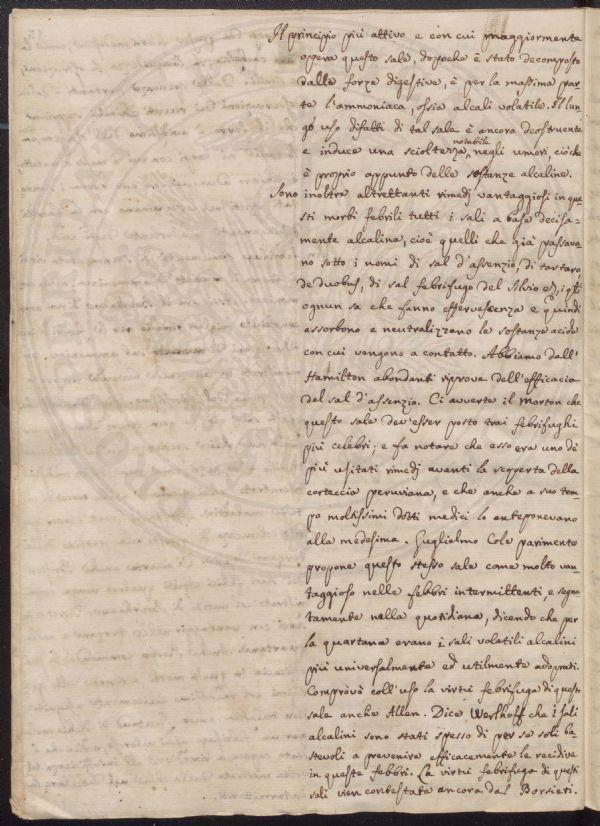 Il principio più attivo e con cui maggiormente
opera questo sale, dopochè è stato decomposto
dalle forze digestive, è per la massima par-
te l'ammoniaca, ossia alcali volatile. Il lun-
go uso difatti di tal sale è ancora deostruente
e induce una scioltezza notabile negli umori, ciochè
è proprio appunto delle sostanze alcaline.
Sono inoltre altrettanti rimedj vantaggiosi in que-
sti morbi febrili tutti i sali a base decisa-
mente alcalina, cioè quelli che già passava-
no sotto i nomi di sal d'assenzio, di tartaro
de duobus, di sal febrifugo del Silvio &, i qti
ognun sa che fanno effervescenza e quindi
assorbono e neutralizzano le sostanze acide
con cui vengono a contatto. Abbiamo dall'
Hamilton abondanti riprove dell'efficacia
del sal d'assenzio. Ci avverte il Morton che
questo sale dev'esser posto trai febrifughi
più celebri; e fa notare che esso era uno de'
più usitati rimedj avanti la scoperta della
corteccia peruviana, e che anche a suo tem-
po moltissimi dotti medici lo anteponevano
alla medesima. Guglielmo Cole parimente
propone questo stesso sale come molto van-
taggioso nelle febbri intermittenti, e segna-
tamente nella quotidiana, dicendo che per
la quartana erano i sali volatili alcalini
più universalmente ed utilmente adoprati.
Comprova coll'uso la virtù febrifuga di questo
sale anche Allen. Dice Werlhoff che i sali
alcalini sono stati spesso di per se soli ba-
stevoli a prevenire efficacemente le recidive
in queste febbri. La virtù febrifuga di questi
sali vien contestata ancora dal Borsieri.